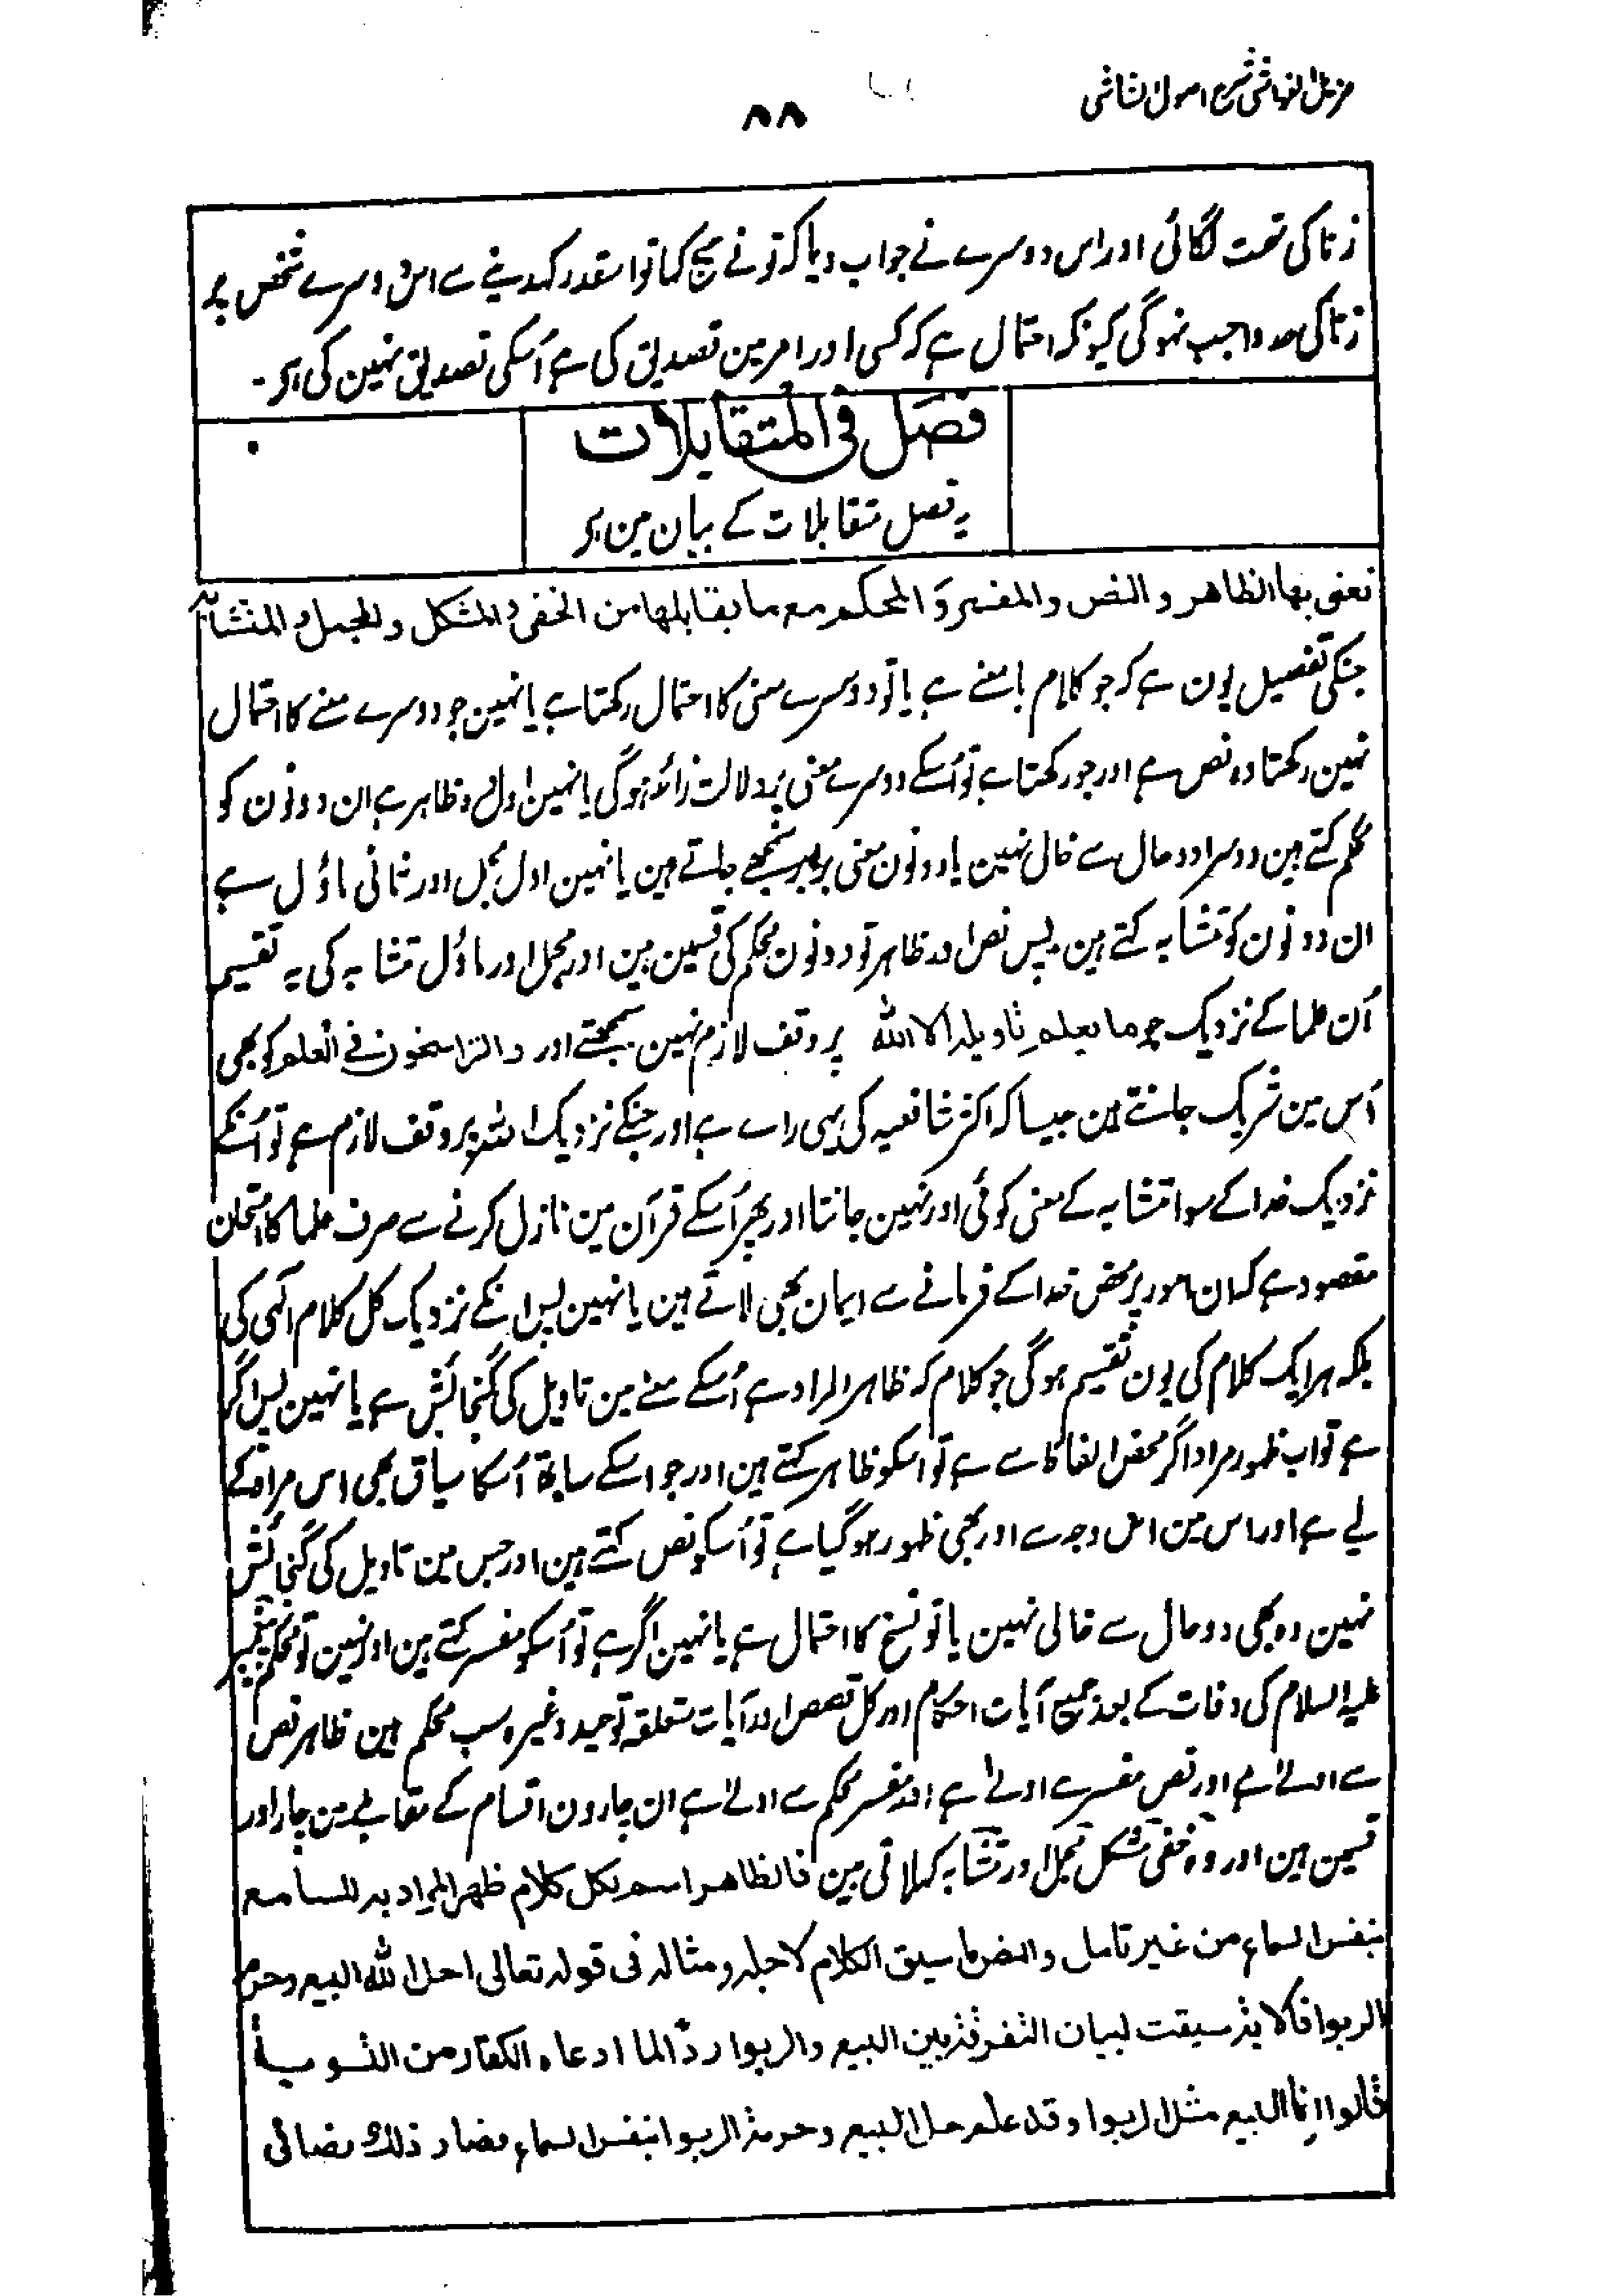 مزیل الغواشی شرح اصول الشاشی
۸۸
زنا کی تہمت لگائی اور اس دوسرے نے جواب دیا کہ تو نے سچ کہا تو اسقدر کہدینے سے اس دوسرے شخص پر
زنا کی حد واجب نہوگی کیونکہ احتمال ہے کہ کسی اور امر مین تصدیق کی ہے اُسکی تصدیق نہین کی ہی۔
فصل فی المتقابلات
یہ فصل متقابلات کے بیان مین ہی
نعنی بہا الظاہر و النص والمفسر و المحکم مع ما یقابلہا من الخفی و المشکل و المجمل و المتشابہ
جنکی تفصیل یون ہے کہ جو کلام بامعنے ہے یا تو دوسرے معنی کا احتمال رکھتا ہے یا نہین جو دوسرے معنے کا احتمال
نہین رکھتا وہ نص ہے اور جو رکھتا ہے تو اُسکے دوسرے معنی پر دلالت زائد ہوگی یا نہین اول ظاہر ہے ان دونون کو
محکم کہتے ہین دوسرا دو حال سے خالی نہین یا دونون معنی برابر سمجھے جاتے ہین یا نہین اول مجمل اور ثانی ماؤل ہے
ان دونون کو متشابہ کہتے ہین پس نص اور ظاہر تو دونون محکم کی قسمین ہین اور مجمل اور ماؤل متشابہ کی یہ تقسیم
اُن علما کے نزدیک جو ما یعلم تاویلہ الا اللہ پر وقف لازم نہین سمجھتے اور والراسخون فی العلم کو بھی
اُس مین شریک جانتے ہین جیسا کہ اکثر شافعیہ کی یہی راے ہے اور جنکے نزدیک اللہ پر وقف لازم ہے تو اُنکے
نزدیک خدا کے سوا متشابہ کے معنی کوئی اور نہین جانتا اور پھر اُسکے قرآن مین نازل کرنے سے صرف علما کا امتحان
مقصود ہے کہ ان امور پر محض خدا کے فرمانے سے ایمان بھی لاتے ہین یا نہین پس انکے نزدیک کل کلام آلہی کی
بلکہ ہر ایک کلام کی یون تقسیم ہوگی جو کلام کہ ظاہر المراد ہے اُسکے معنے مین تاویل کی گنجائش ہے یا نہین پس اگر
ہے تو اب ظہور مراد اگر محض الفاظ سے ہے تو اسکو ظاہر کہتے ہین اور جو اسکے ساتھ اُسکا سیاق بھی اس مراد کے
لیے ہے اور اس مین اس وجہ سے اور بھی ظہور ہو گیا ہے تو اُسکو نص کہتے ہین اور جس مین تاویل کی گنجائش
نہین وہ بھی دو حال سے خالی نہین یا تو نسخ کا احتمال ہے یا نہین اگر ہے تو اُسکو مفسر کہتے ہین اور نہین تو محکم پیغمبر
علیہ السلام کی وفات کے بعد جمیع آیات احکام اور کل قصص اور آیات متعلقہ توحید وغیرہ سب محکم ہین ظاہر نص
سے اولے ہے اور نص مفسر سے اولے ہے اور مفسر محکم سے اولے ہے ان چارون اقسام کے مقابلے مین چار اور
قسمین ہین اور وہ خفی مشکل مجمل اور متشابہ کہلاتی ہین فالظاہر اسم لکل کلام ظہر المراد بہ للسامع
بنفس السماع من غیر تامل والنص ما سیق الکلام لاجلہ ومثالہ فی قولہ تعالی احل اللہ البیع وحرم
الربوا فالایۃ سیقت لبیان التفرقۃ بین البیع والربوا ردًّا لما ادعاہ الکفار من التسویۃ
قالوا انما البیع مثل الربوا وقد علم حل البیع وحرمۃ الربوا بنفس السماع فصار ذلک نصا فی